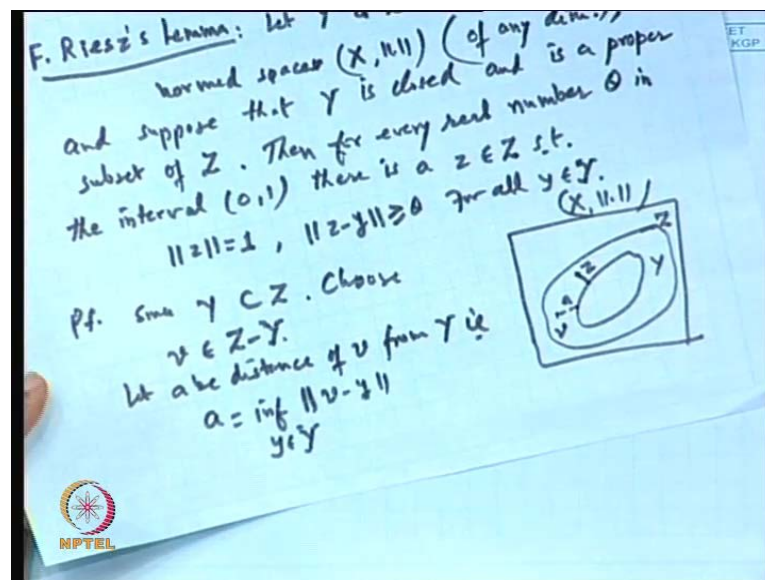 F. Riesz's Lemma: Let Y
normed spaces (X, ||.||) (of any dim.),
and suppose that Y is closed and is a proper
subset of Z. Then for every real number θ in
the interval (0,1) there is a z ∈ Z s.t.
||z||=1, ||z-y|| ≥ θ for all y ∈ Y.
(X, ||.||)
Z
Y
z
a
v
Pf. Since Y ⊂ Z. Choose
v ∈ Z-Y.
Let a be distance of v from Y ie
a = inf ||v-y||
y∈Y
ET
KGP
NPTEL